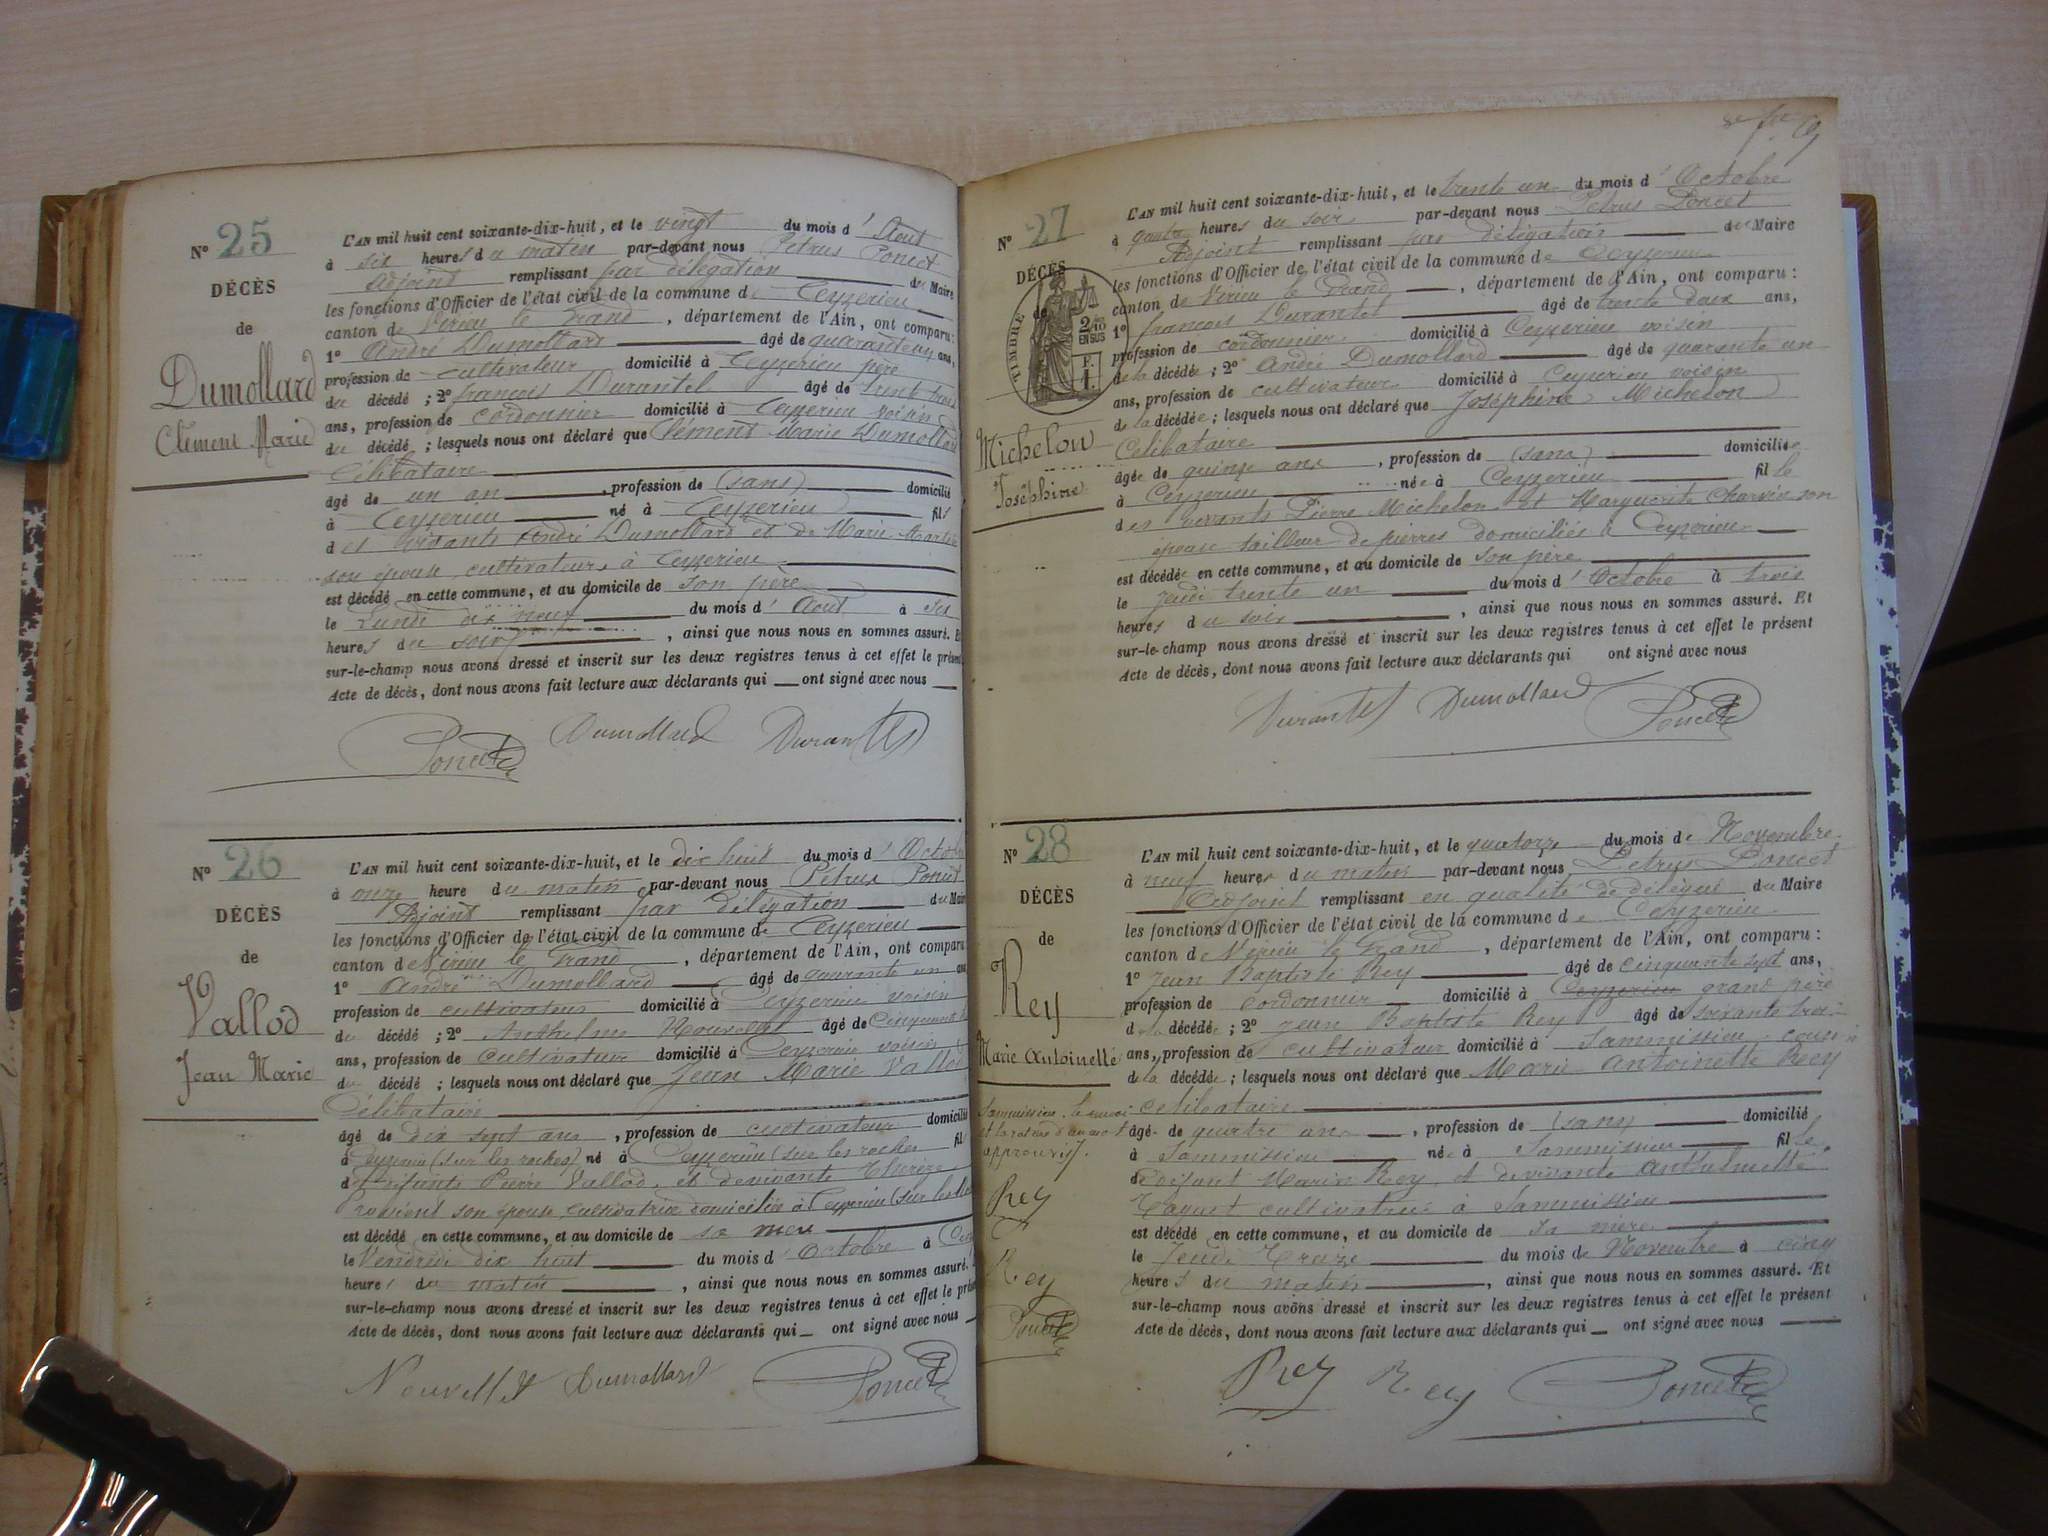 N° 25
DÉCÈS
de
Dumollard
Clément Marie
L'AN mil huit cent soixante-dix-huit, et le vingt du mois d'Aout
à six heures du matin par-devant nous Petrus Poncet
Adjoint remplissant par délégation du Maire
les fonctions d'Officier de l'état civil de la commune de Ceyzerieu
canton de Virieu le Grand, département de l'Ain, ont comparu :
1° André Dumollard âgé de quarante un ans,
profession de cultivateur domicilié à Ceyzerieu père
du décédé ; 2° françois Durantel âgé de trente trois
ans, profession de cordonnier domicilié à Ceyzerieu voisin
du décédé ; lesquels nous ont déclaré que Clément Marie Dumollard
Célibataire
âgé de un an, profession de (sans) domicilié
à Ceyzerieu né à Ceyzerieu fils
des vivants André Dumollard et de Marie
son épouse cultivateurs à Ceyzerieu
est décédé en cette commune, et au domicile de son père
le Lundi dix neuf du mois d'Aout à six
heures du soir, ainsi que nous nous en sommes assuré. Et
sur-le-champ nous avons dressé et inscrit sur les deux registres tenus à cet effet le présent
Acte de décès, dont nous avons fait lecture aux déclarants qui ont signé avec nous
Poncet Dumollard Durantel
N° 26
DÉCÈS
de
Vallod
Jean Marie
L'AN mil huit cent soixante-dix-huit, et le dix huit du mois d'Octobre
à onze heure du matin par-devant nous Petrus Poncet
Adjoint remplissant par délégation du Maire
les fonctions d'Officier de l'état civil de la commune de Ceyzerieu
canton de Virieu le Grand, département de l'Ain, ont comparu
1° André Dumollard âgé de quarante un ans
profession de cultivateur domicilié à Ceyzerieu voisin
du décédé ; 2° Anthelme Nouvellet âgé de cinquante
ans, profession de cultivateur domicilié à Ceyzerieu voisin
du décédé ; lesquels nous ont déclaré que Jean Marie Vallod
Célibataire
âgé de dix sept ans, profession de cultivateur domicilié
à Ceyzerieu (sur les roches) né à Ceyzerieu (sur les roches fils
de défunts Pierre Vallod, et de vivante Thérèze
son épouse cultivatrice domiciliée à Ceyzerieu (sur les
est décédé en cette commune, et au domicile de sa mere
le Vendredi dix huit du mois d'Octobre à
heures du matin, ainsi que nous nous en sommes assuré.
sur-le-champ nous avons dressé et inscrit sur les deux registres tenus à cet effet le présent
Acte de décès, dont nous avons fait lecture aux déclarants qui ont signé avec nous
Nouvellet Dumollard Poncet
N° 27
DÉCÈS
de
TIMBRE
2/10 EN SUS
F. 1.
Michelon
Joséphine
L'AN mil huit cent soixante-dix-huit, et le trente un du mois d'Octobre
à quatre heures du soir par-devant nous Petrus Poncet
Adjoint remplissant par délégation du Maire
les fonctions d'Officier de l'état civil de la commune de Ceyzerieu
canton de Virieu le Grand, département de l'Ain, ont comparu :
1° francois Durantel âgé de trente deux ans,
profession de cordonnier domicilié à Ceyzerieu voisin
de la décédée ; 2° André Dumollard âgé de quarante un
ans, profession de cultivateur domicilié à Ceyzerieu voisin
de la décédée ; lesquels nous ont déclaré que Joséphine Michelon
Célibataire
âgée de quinze ans, profession de (sans) domiciliée
à Ceyzerieu née à Ceyzerieu fille
des vivants Pierre Michelon et Marguerite Charvin son
épouse tailleur de pierres domiciliés à Ceyzerieu
est décédée en cette commune, et au domicile de son père
le Jeudi trente un du mois d'Octobre à trois
heures du soir, ainsi que nous nous en sommes assuré. Et
sur-le-champ nous avons dressé et inscrit sur les deux registres tenus à cet effet le présent
Acte de décès, dont nous avons fait lecture aux déclarants qui ont signé avec nous
Durantel Dumollard Poncet
N° 28
DÉCÈS
de
Rey
Marie Antoinette
approuvés.
Rey
Rey
Poncet
L'AN mil huit cent soixante-dix-huit, et le quatorze du mois de Novembre
à neuf heures du matin par-devant nous Petrus Poncet
Adjoint remplissant en qualité de délégué du Maire
les fonctions d'Officier de l'état civil de la commune de Ceyzerieu
canton de Virieu le Grand, département de l'Ain, ont comparu :
1° Jean Baptiste Rey âgé de cinquante sept ans,
profession de cordonnier domicilié à Ceyzerieu grand père
de la décédée ; 2° Jean Baptiste Rey âgé de soixante trois
ans, profession de cultivateur domicilié à Sammissieu cousin
de la décédée ; lesquels nous ont déclaré que Marie Antoinette Rey
celibataire
âgée de quatre ans, profession de (sans) domicilié
à Sammissieu née à Sammissieu fille
de défunt Marin Rey, et de vivante Anthelmette
cultivatrice à Sammissieu
est décédé en cette commune, et au domicile de sa mère
le Jeudi Treize du mois de Novembre à cinq
heures du matin, ainsi que nous nous en sommes assuré. Et
sur-le-champ nous avons dressé et inscrit sur les deux registres tenus à cet effet le présent
Acte de décès, dont nous avons fait lecture aux déclarants qui ont signé avec nous
Rey Rey Poncet